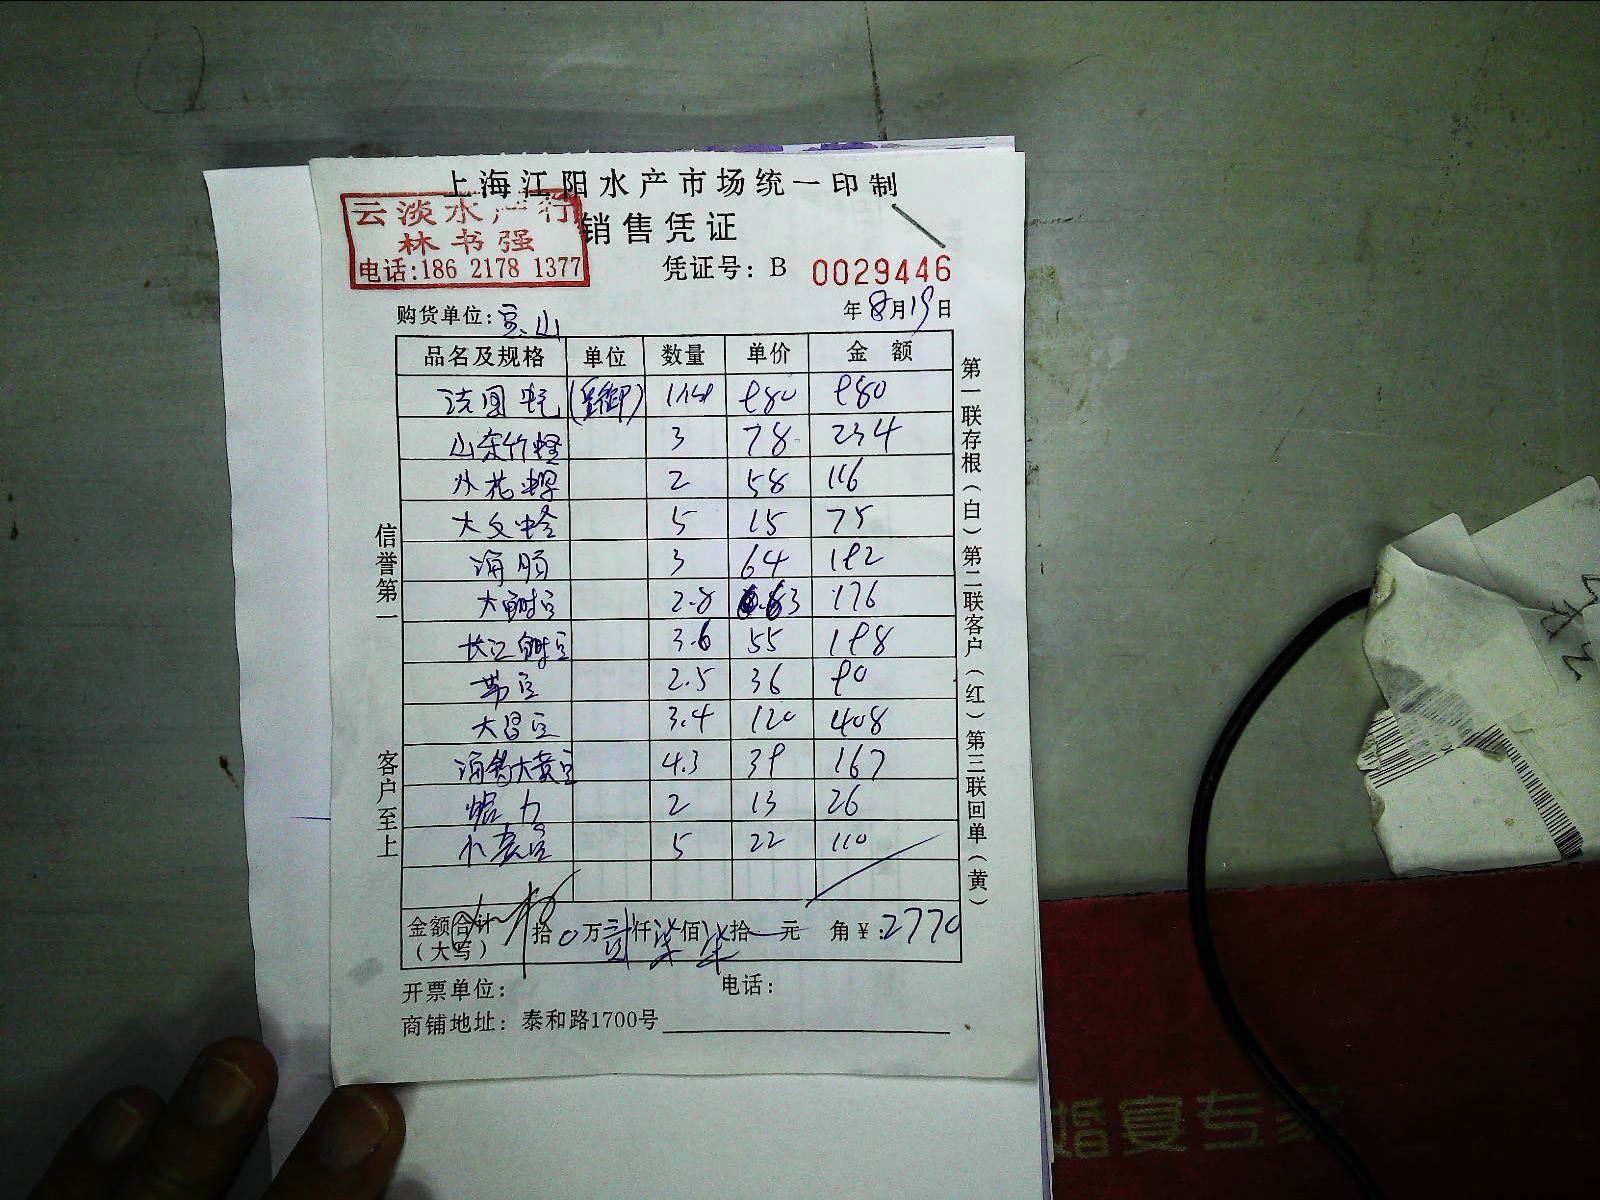 上海江阳水产市场统一印制
云淡水产行
林书强
电话:186 2178 1377
销售凭证
凭证号: B 0029446
购货单位: 宝山 年8月19日
品名及规格 单位 数量 单价 金 额
法国 980 980
山东竹蛏 3 78 234
小花螺 2 58 116
大文蛤 5 15 75
海肠 3 64 192
大 2.8 63 176
长江 3.6 55 198
2.5 36 90
大 3.4 120 408
海 大黄 4.3 39 167
2 13 26
小 5 22 110
金额合计(大写) 拾0万贰仟柒佰柒拾 元 角￥:2770
开票单位: 电话:
商铺地址: 泰和路1700号
信誉第一
客户至上
第一联存根(白)第二联客户(红)第三联回单(黄)
婚宴专家